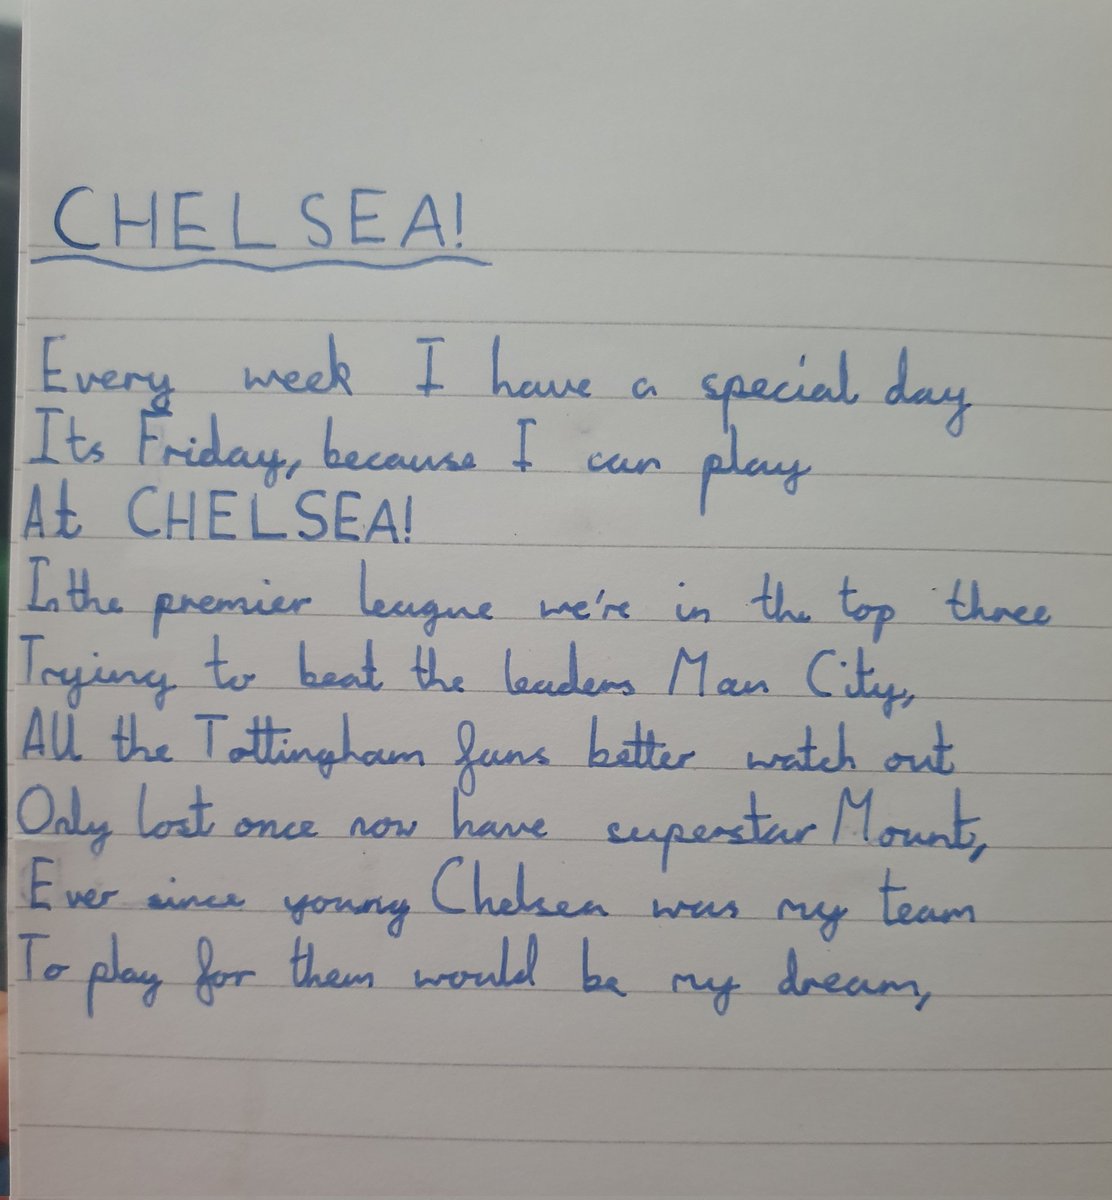 CHELSEA!
Every week I have a special day
Its Friday, because I can play
At CHELSEA!
In the premier league we're in the top three
Trying to beat the leaders Man City,
All the Tottingham fans better watch out
Only lost once now have superstar Mount,
Ever since young Chelsea was my team
To play for them would be my dream,